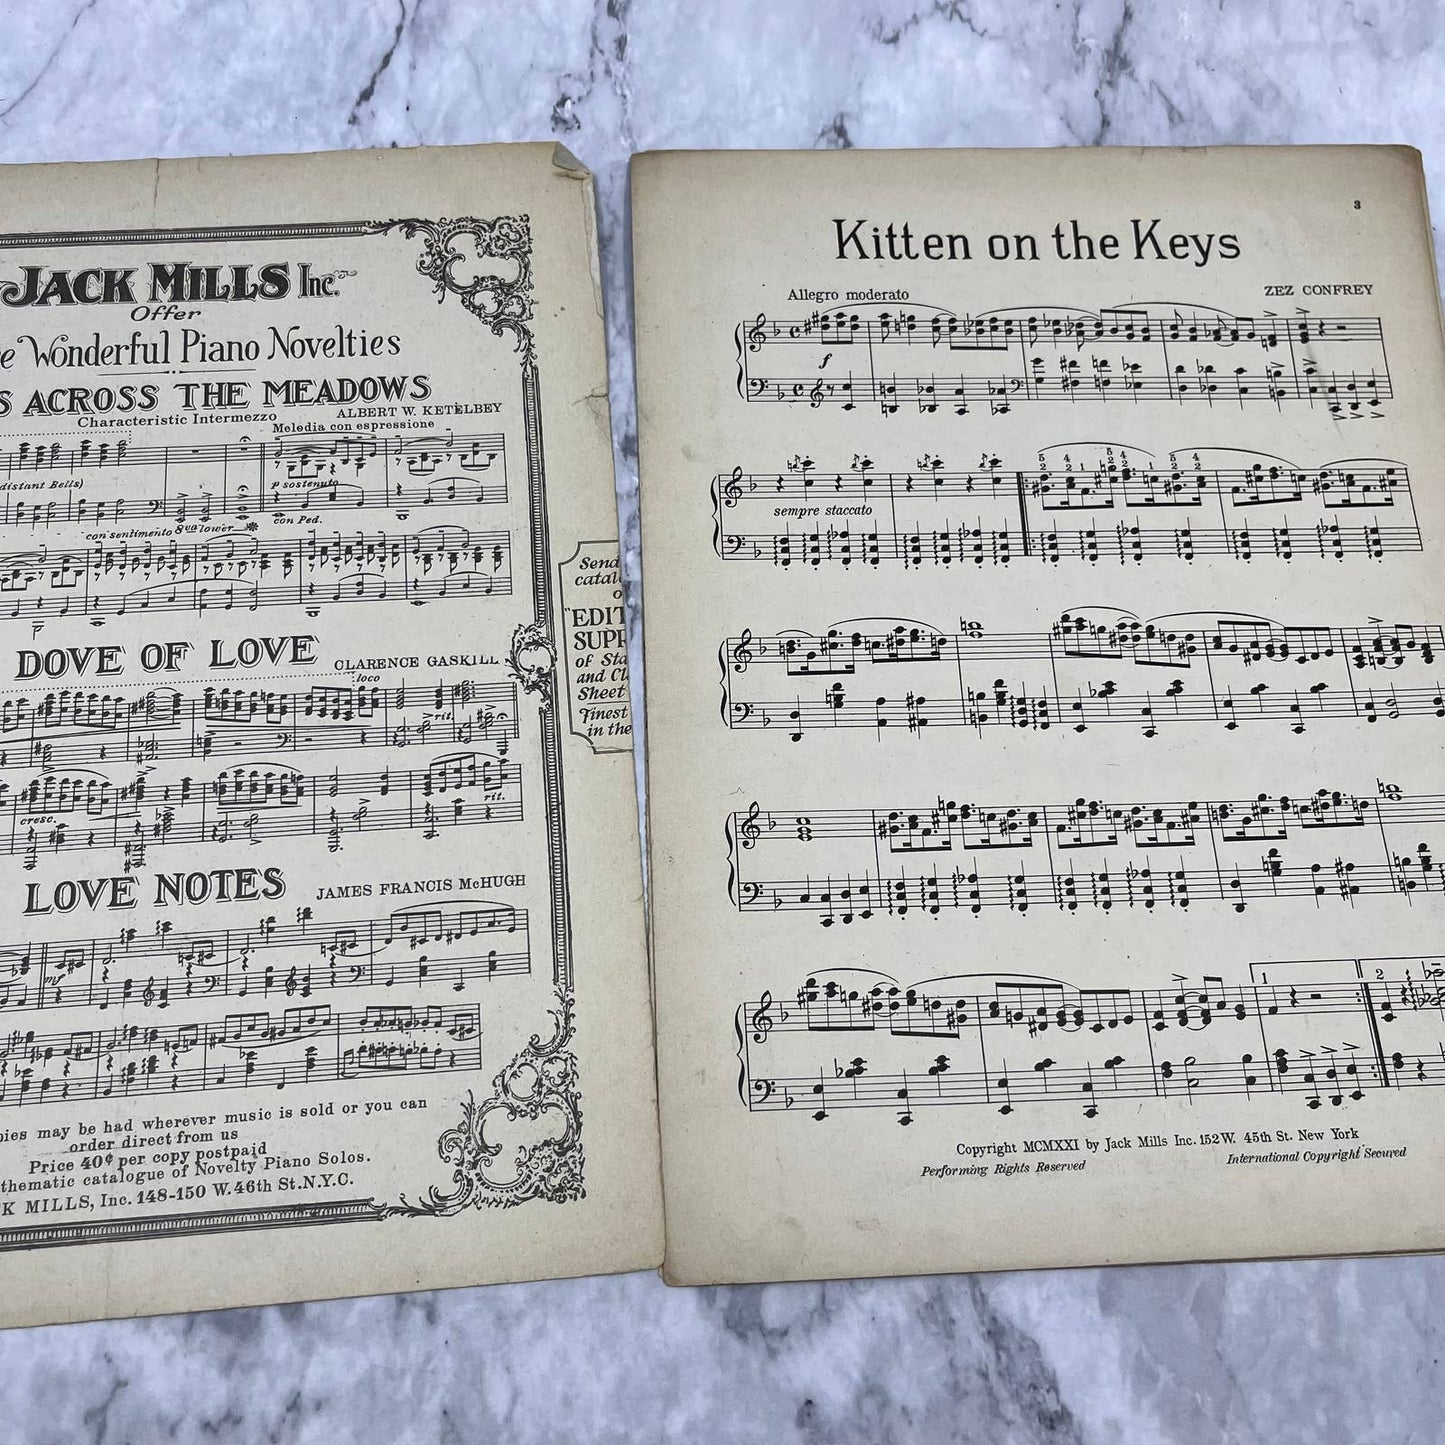 JACK MILLS Inc.
Offer
Wonderful Piano Novelties
ACROSS THE MEADOWS
Characteristic Intermezzo
ALBERT W. KETÈLBEY
Melodia con espressione
distant Bells)
p sostenuto
con Ped.
con sentimento 8va lower
p
DOVE OF LOVE
CLARENCE GASKILL
loco
rit.
cresc.
rit.
LOVE NOTES
JAMES FRANCIS McHUGH
mf
may be had wherever music is sold or you can
order direct from us
Price 40¢ per copy postpaid
thematic catalogue of Novelty Piano Solos.
MILLS, Inc. 148-150 W. 46th St. N.Y.C.
Send
of
and
Sheet
Finest
in the
3
Kitten on the Keys
Allegro moderato
ZEZ CONFREY
f
5 4 5 4 5 4
2 2 1 2 2 1 2 2
sempre staccato
1 2
Copyright MCMXXI by Jack Mills Inc. 152 W. 45th St. New York
Performing Rights Reserved
International Copyright Secured